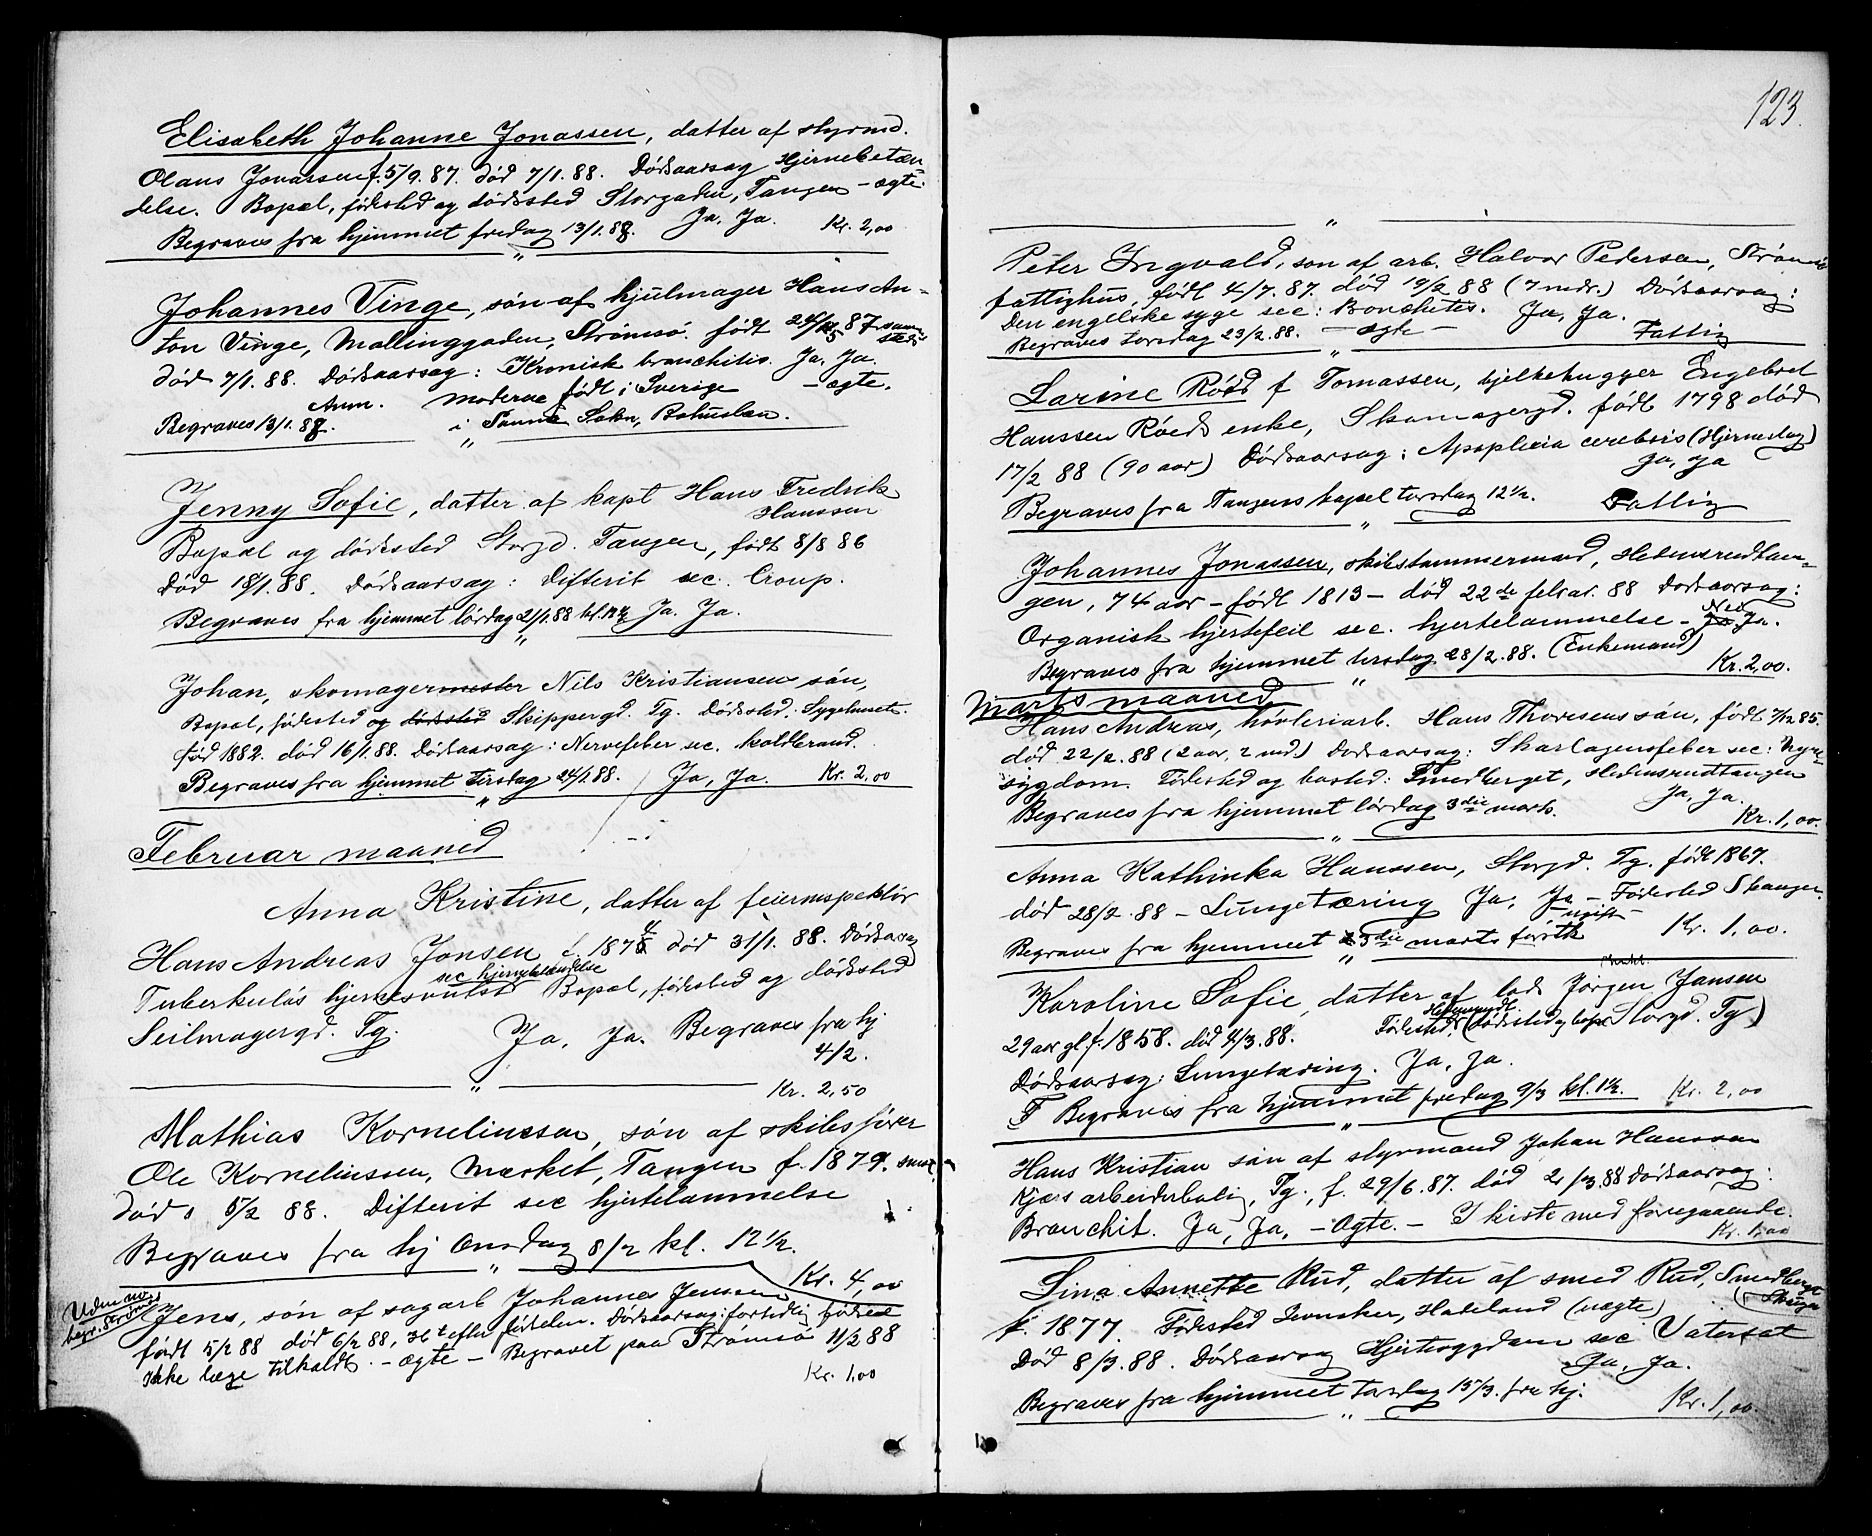 Elisabeth Johanne Jonassen, datter af styrmd.
Olaus Jonassen f. 5/9.87. død 7/1.88. Dødsaarsag Hjernebetæn-
delse. Bopæl, fødested og dødssted Storgaden, Tangen - ægte.
Begraves fra hjemmet fredag 13/1.88. Ja, Ja. Kr. 2,00
Johannes Vinge, søn af hjulmager Hans An-
ton Vinge, Mallinggaden, Strømsø. født 87 samme sted
død 7/1.88. Dødsaarsag: Kronisk bronchitis. Ja. Ja.
Anm. moderen født i Sverige - ægte.
Begraves 13/1.88. i Sanne Sokn, Bohuslen.
Jenny Sofie, datter af kapt Hans Fredrik
Hanssen
Bopæl og dødssted Storgd. Tangen, født 8/8 86
Død 18/1.88. Dødsaarsag: Difterit sec. Croup.
Begraves fra hjemmet lørdag 21/1.88 kl. Ja. Ja.
Johan, skomagermester Nils Kristiansens søn,
Bopæl, fødested og dødssted Skippergd. Tg. Dødssted: Sygehuset
fød 1882. død 16/1.88. Dødsaarsag: Nervefeber sec. koldbrand.
Begraves fra hjemmet tirsdag 24/1.88. Ja, Ja. Kr. 2,00
Februar maaned
Anna Kristine, datter af feierinspektør
Hans Andreas Jonsen f. 187 død 31/1.88. Dødsaarsag
sec hjernebetændelse
Tuberkuløs Bopæl, fødested og dødssted
Seilmagergd. Tg. Ja, Ja. Begraves fra hj
4/2.
Kr. 2,50
Mathias Kornelinssen, søn af skibsfører
Ole Kornelinssen, Mærket, Tangen f. 1879.
død 5/2 88. Difterit sec hjertelammelse
Begraves fra hj Onsdag 8/2 kl. 12½.
Kr. 4,00
Uden no.
begr. Strømsø
Jens, søn af sagarb Johannes Jensen
født 5/2 88 død 6/2 88, 36 t efter fødselen. Dødsaarsag: fortidlig fødsel
Ikke læge tilkaldt. - ægte - Begravet paa Strømsø 11/2 88
Kr. 1,00
123.
Peter Ingvald, søn af arb. Halvor Pedersen, Strømsø
fattighus, født 4/7.87. død 19/2 88 (7 mdr.) Dødsaarsag:
Den engelske syge sec: Bronchites. Ja, Ja.
Begraves torsdag 23/2.88. - ægte - Fattig
Larine Röed f Tomassen, hjelkehugger Engebret
Hanssen Röeds enke, Skomagergd. født 1798 død
17/2 88 (90 aar) Dødsaarsag: Apoplexia cerebris (Hjerneslag)
Ja, Ja
Begraves fra Tangens kapel torsdag 12½. Fattig
Johannes Jonassen, skibstømmermand, Hedensrudtan-
gen, 74 aar - født 1813 - død 22de febrar. 88 Dødsaarsag:
Organisk hjertefeil sec. hjertelammelse - Nei Ja.
Begraves fra hjemmet tirsdag 28/2.88. (Enkemand) Kr. 2,00.
Marts maaned
Hans Andreas, høvleriarb. Hans Thoresens søn, født 7/12 85.
død 22/2.88 (2 aar, 2 md.) Dødsaarsag: Skarlagensfeber sec: Nyre-
sygdom. Fødested og bosted: Smedberget, Hedensrudtangen
Ja, Ja.
Begraves fra hjemmet lørdag 3die marts. Kr. 1,00.
Anna Kathinka Hanssen, Storgd. Tg. født 1867.
død 28/2.88 - Lungetæring Ja, Ja - Fødested Skauger.
- ugift -
Begraves fra hjemmet 3die marts Kr. 1,00.
Karoline Sofie, datter af lods Jørgen Jansen
29 aar gl. f. 1858. død 4/3.88. Fødested (dødssted og bopæl Storgd. Tg)
Dødsaarsag: Lungetæring. Ja, Ja.
Begraves fra hjemmet fredag 9/3 kl. 1½. Kr. 2,00
Hans Kristian søn af styrmand Johan Hanssen
Kjærs arbeiderbolig, Tg., f. 29/6.87. død 2/3.88 Dødsaarsag:
Bronchit. Ja, Ja, - Ægte. - I kiste med foregaaende.
Kr. 1,00
Lina Annette Rud, datter af smed Rud, Smedberget
f. 1877. Fødested Jevnaker, Hadeland (uægte)
Død 8/3.88. Dødsaarsag Hjertesygdom sec Vatersot
Ja, Ja.
Begraves fra hjemmet torsdag 15/3. fra hj. Kr. 1,00.